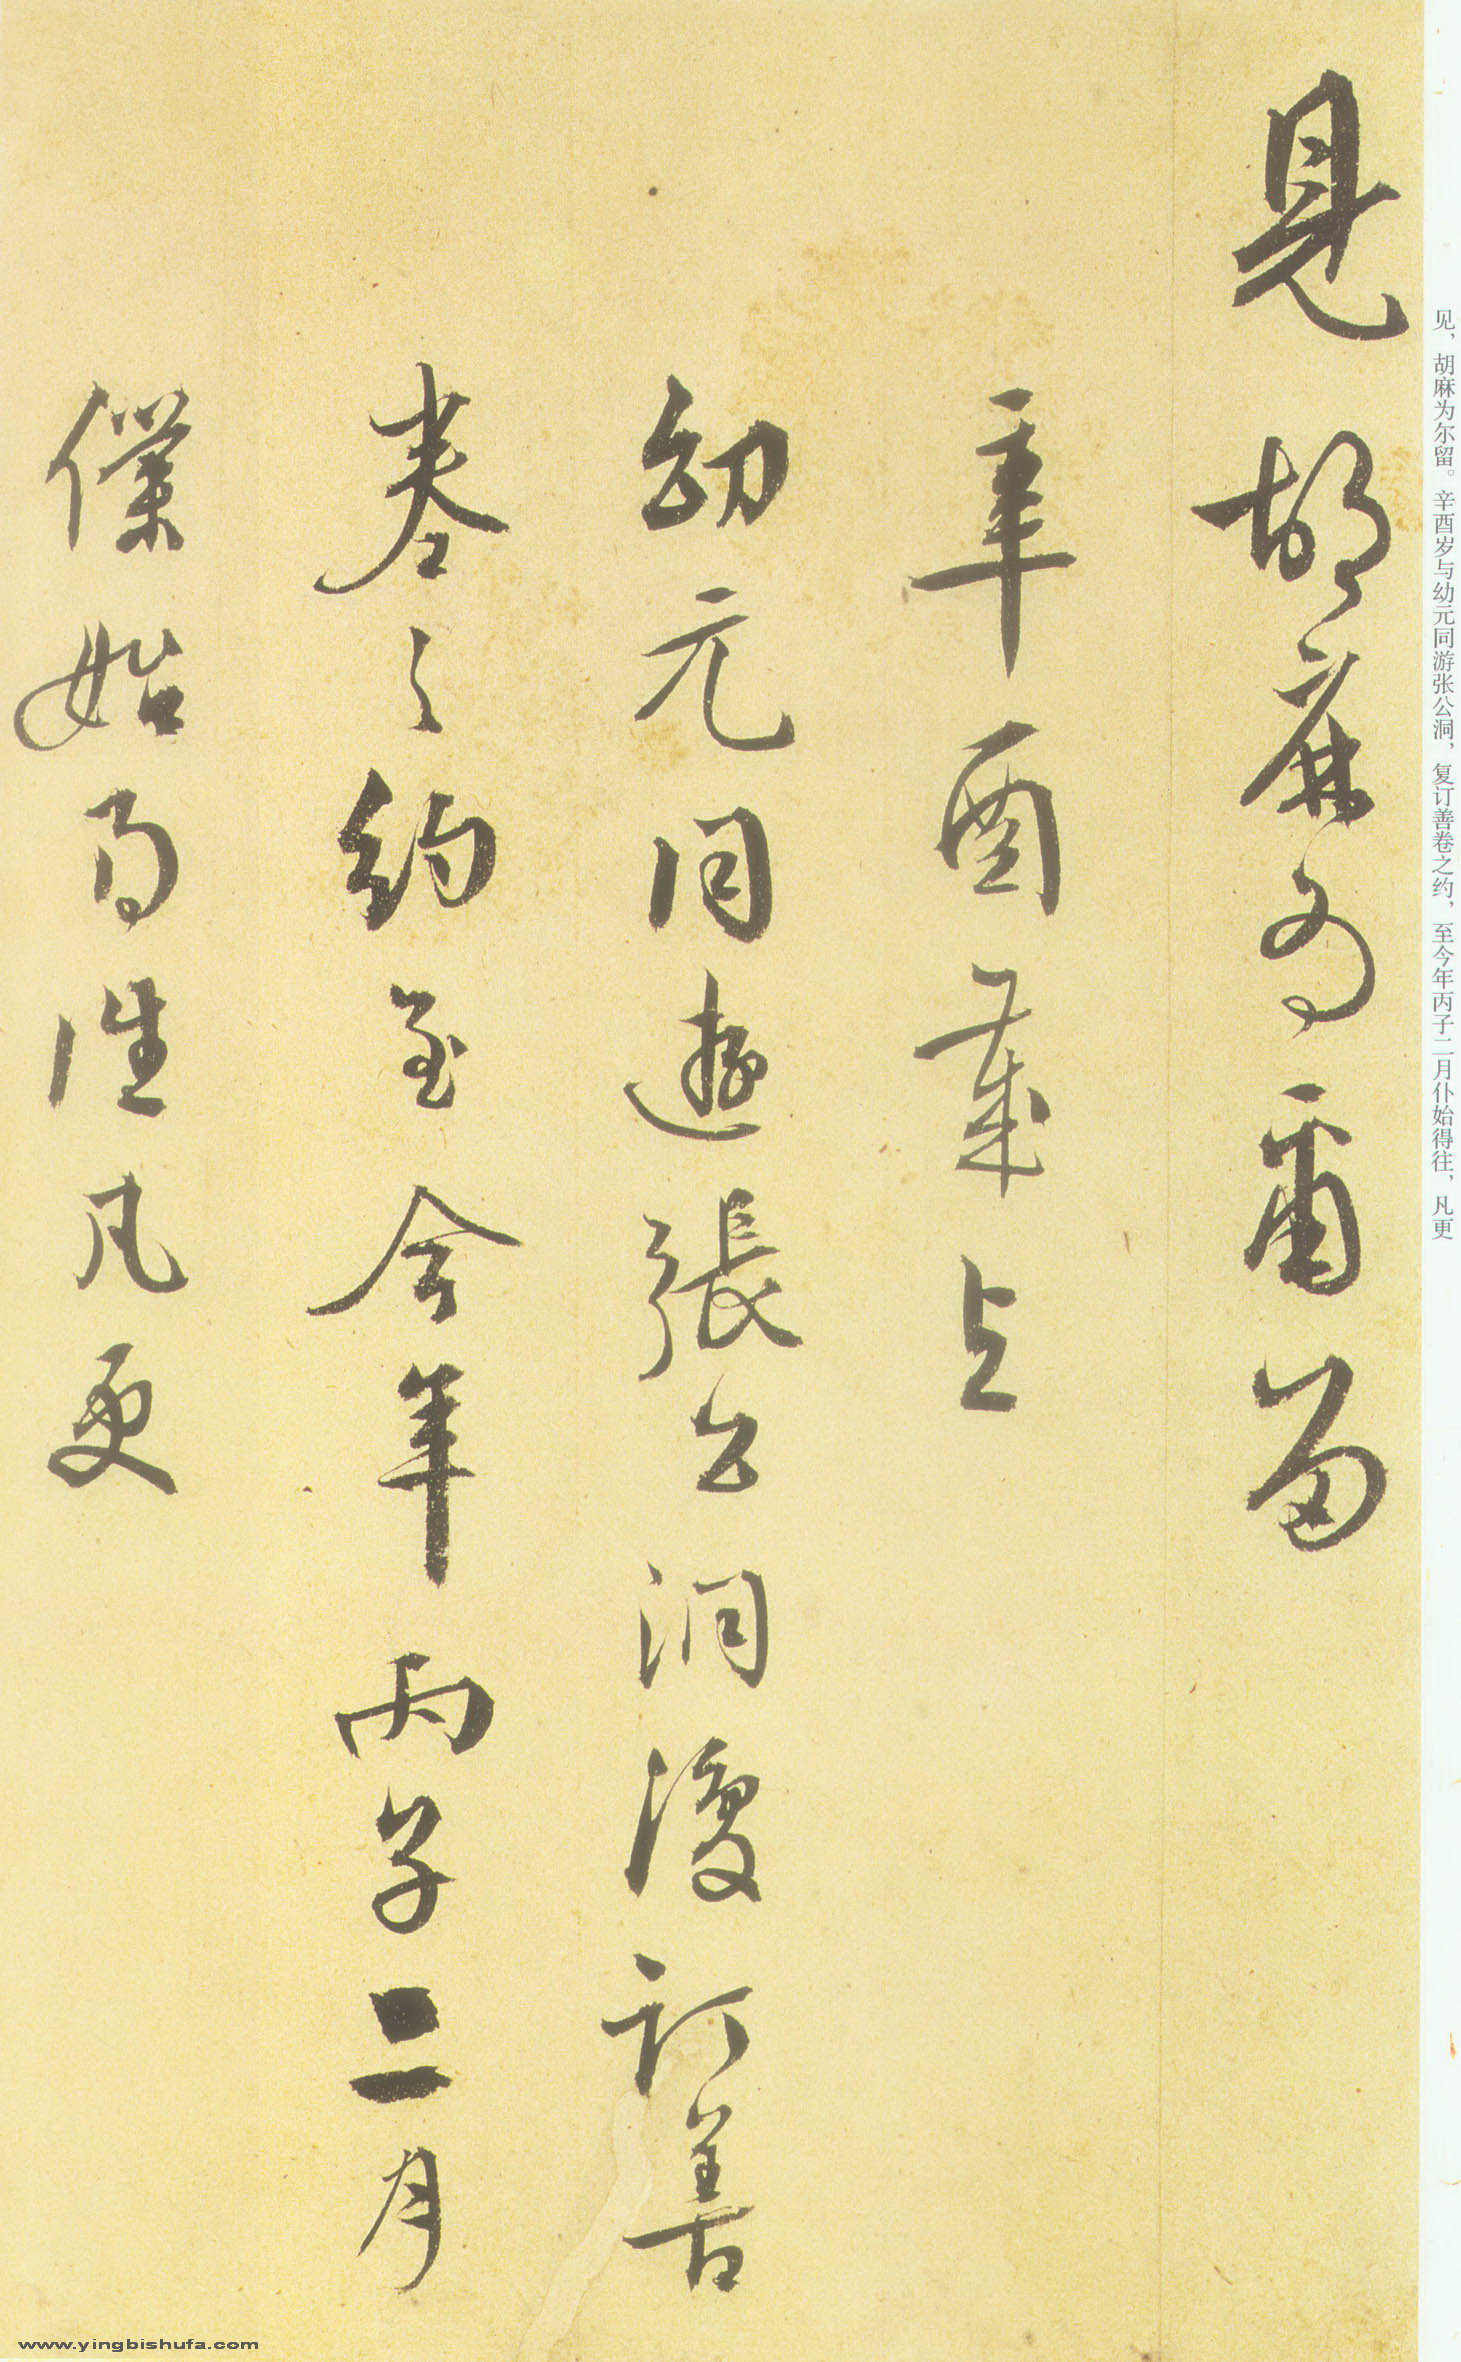 見胡麻為爾留
辛酉歲与
幼元同遊張公洞復訂善
卷之約至今年丙子二月
僕始得往凡更
见，胡麻为尔留。辛酉岁与幼元同游张公洞，复订善卷之约，至今年丙子二月仆始得往，凡更
www.yingbishufa.com